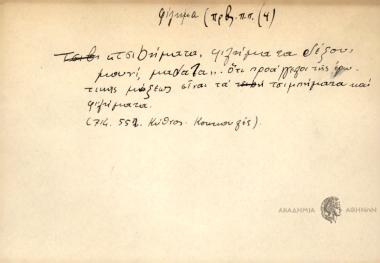 φίλημα (πρβ. ππ. (4)
τσιβήματα, φιλήματα δέξου,
μουνί, μαντάτα... Ότι προάγγελοι της ερω-
τικής μίξεως είναι τα τσιμπήματα και
φιλήματα.
(716. 552. Κύθνος. Κουκουλές).
ΑΚΑΔΗΜΙΑ ΑΘΗΝΩΝ